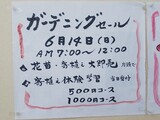 ガーデニングセール
6月14日(日)
AM7:00〜12:00
・花苗・寄植え大即売
・寄植え体験学習
500円コース
1000円コース